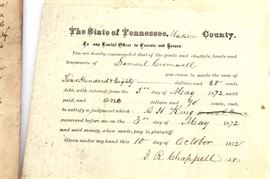 The State of Tennessee, Madison County.
To any Lawful Officer to Execute and Return:
You are hereby commanded that of the goods and chattels, lands and
tenements of Samuel Cromwell
you cause to be made the sum of
Four Hundred & Eighty dollars and 68 cents
debt, with interest from the 3rd day of May 1872 until
paid, and one dollars and 90 cents, cost,
to satisfy a judgment which A H King
recovered before me on the 3rd day of May 1872
and said money, when made, pay to plaintiff
Given under my hand this 10 day of October 1872
J. R. Chappell